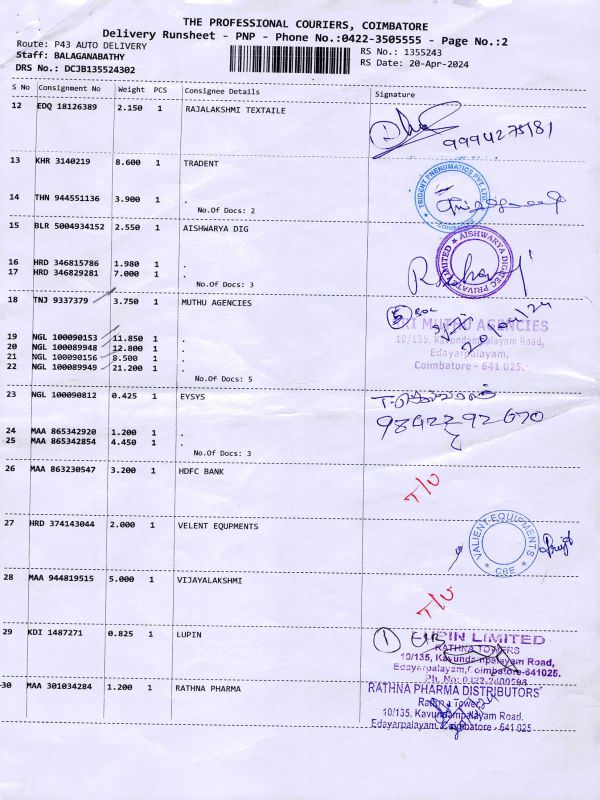 THE PROFESSIONAL COURIERS, COIMBATORE
Delivery Runsheet - PNP - Phone No.:0422-3505555 - Page No.:2
Route: P43 AUTO DELIVERY
Staff: BALAGANABATHY
DRS No.: DCJB135524302
RS No.: 1355243
RS Date: 20-Apr-2024
S No Consignment No Weight PCS Consignee Details Signature
12 EDQ 18126389 2.150 1 RAJALAKSHMI TEXTAILE
9994275181
13 KHR 3140219 8.600 1 TRADENT
TRIDENT PNEUMATICS PVT. LTD.
COIMBATORE
14 THN 944551136 3.900 1 .
No.Of Docs: 2
15 BLR 5004934152 2.550 1 AISHWARYA DIG
AISHWARYA DIGITEC PRIVATE LIMITED
16 HRD 346815786 1.980 1 .
17 HRD 346829281 7.000 1 .
No.Of Docs: 3
18 TNJ 9337379 3.750 1 MUTHU AGENCIES
5 Box
20/04/24
SRI MUTHU AGENCIES
10/135, Kavundampalayam Road,
Edayarpalayam,
Coimbatore - 641 025.
19 NGL 100090153 11.850 1 .
20 NGL 100089948 12.800 1 .
21 NGL 100090156 8.500 1 .
22 NGL 100089949 21.200 1 .
No.Of Docs: 5
23 NGL 100090812 0.425 1 EYSYS
9842292670
24 MAA 865342920 1.200 1 .
25 MAA 865342854 4.450 1 .
No.Of Docs: 3
26 MAA 863230547 3.200 1 HDFC BANK
T/U
27 HRD 374143044 2.000 1 VELENT EQUPMENTS
VALIENT EQUIPMENTS
CBE
28 MAA 944819515 5.000 1 VIJAYALAKSHMI
T/U
29 KDI 1487271 0.825 1 LUPIN
1
LUPIN LIMITED
RATHNA TOWERS
10/135, Kavundampalayam Road,
Edayarpalayam, Coimbatore-641025.
Ph. No: 0422-2400598
30 MAA 301034284 1.200 1 RATHNA PHARMA
RATHNA PHARMA DISTRIBUTORS
Rathna Tower
10/135, Kavundampalayam Road,
Edayarpalayam, Coimbatore - 641 025